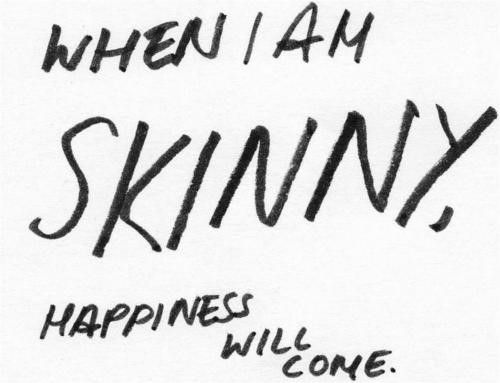 WHEN I AM
SKINNY,
HAPPINESS
WILL
COME.